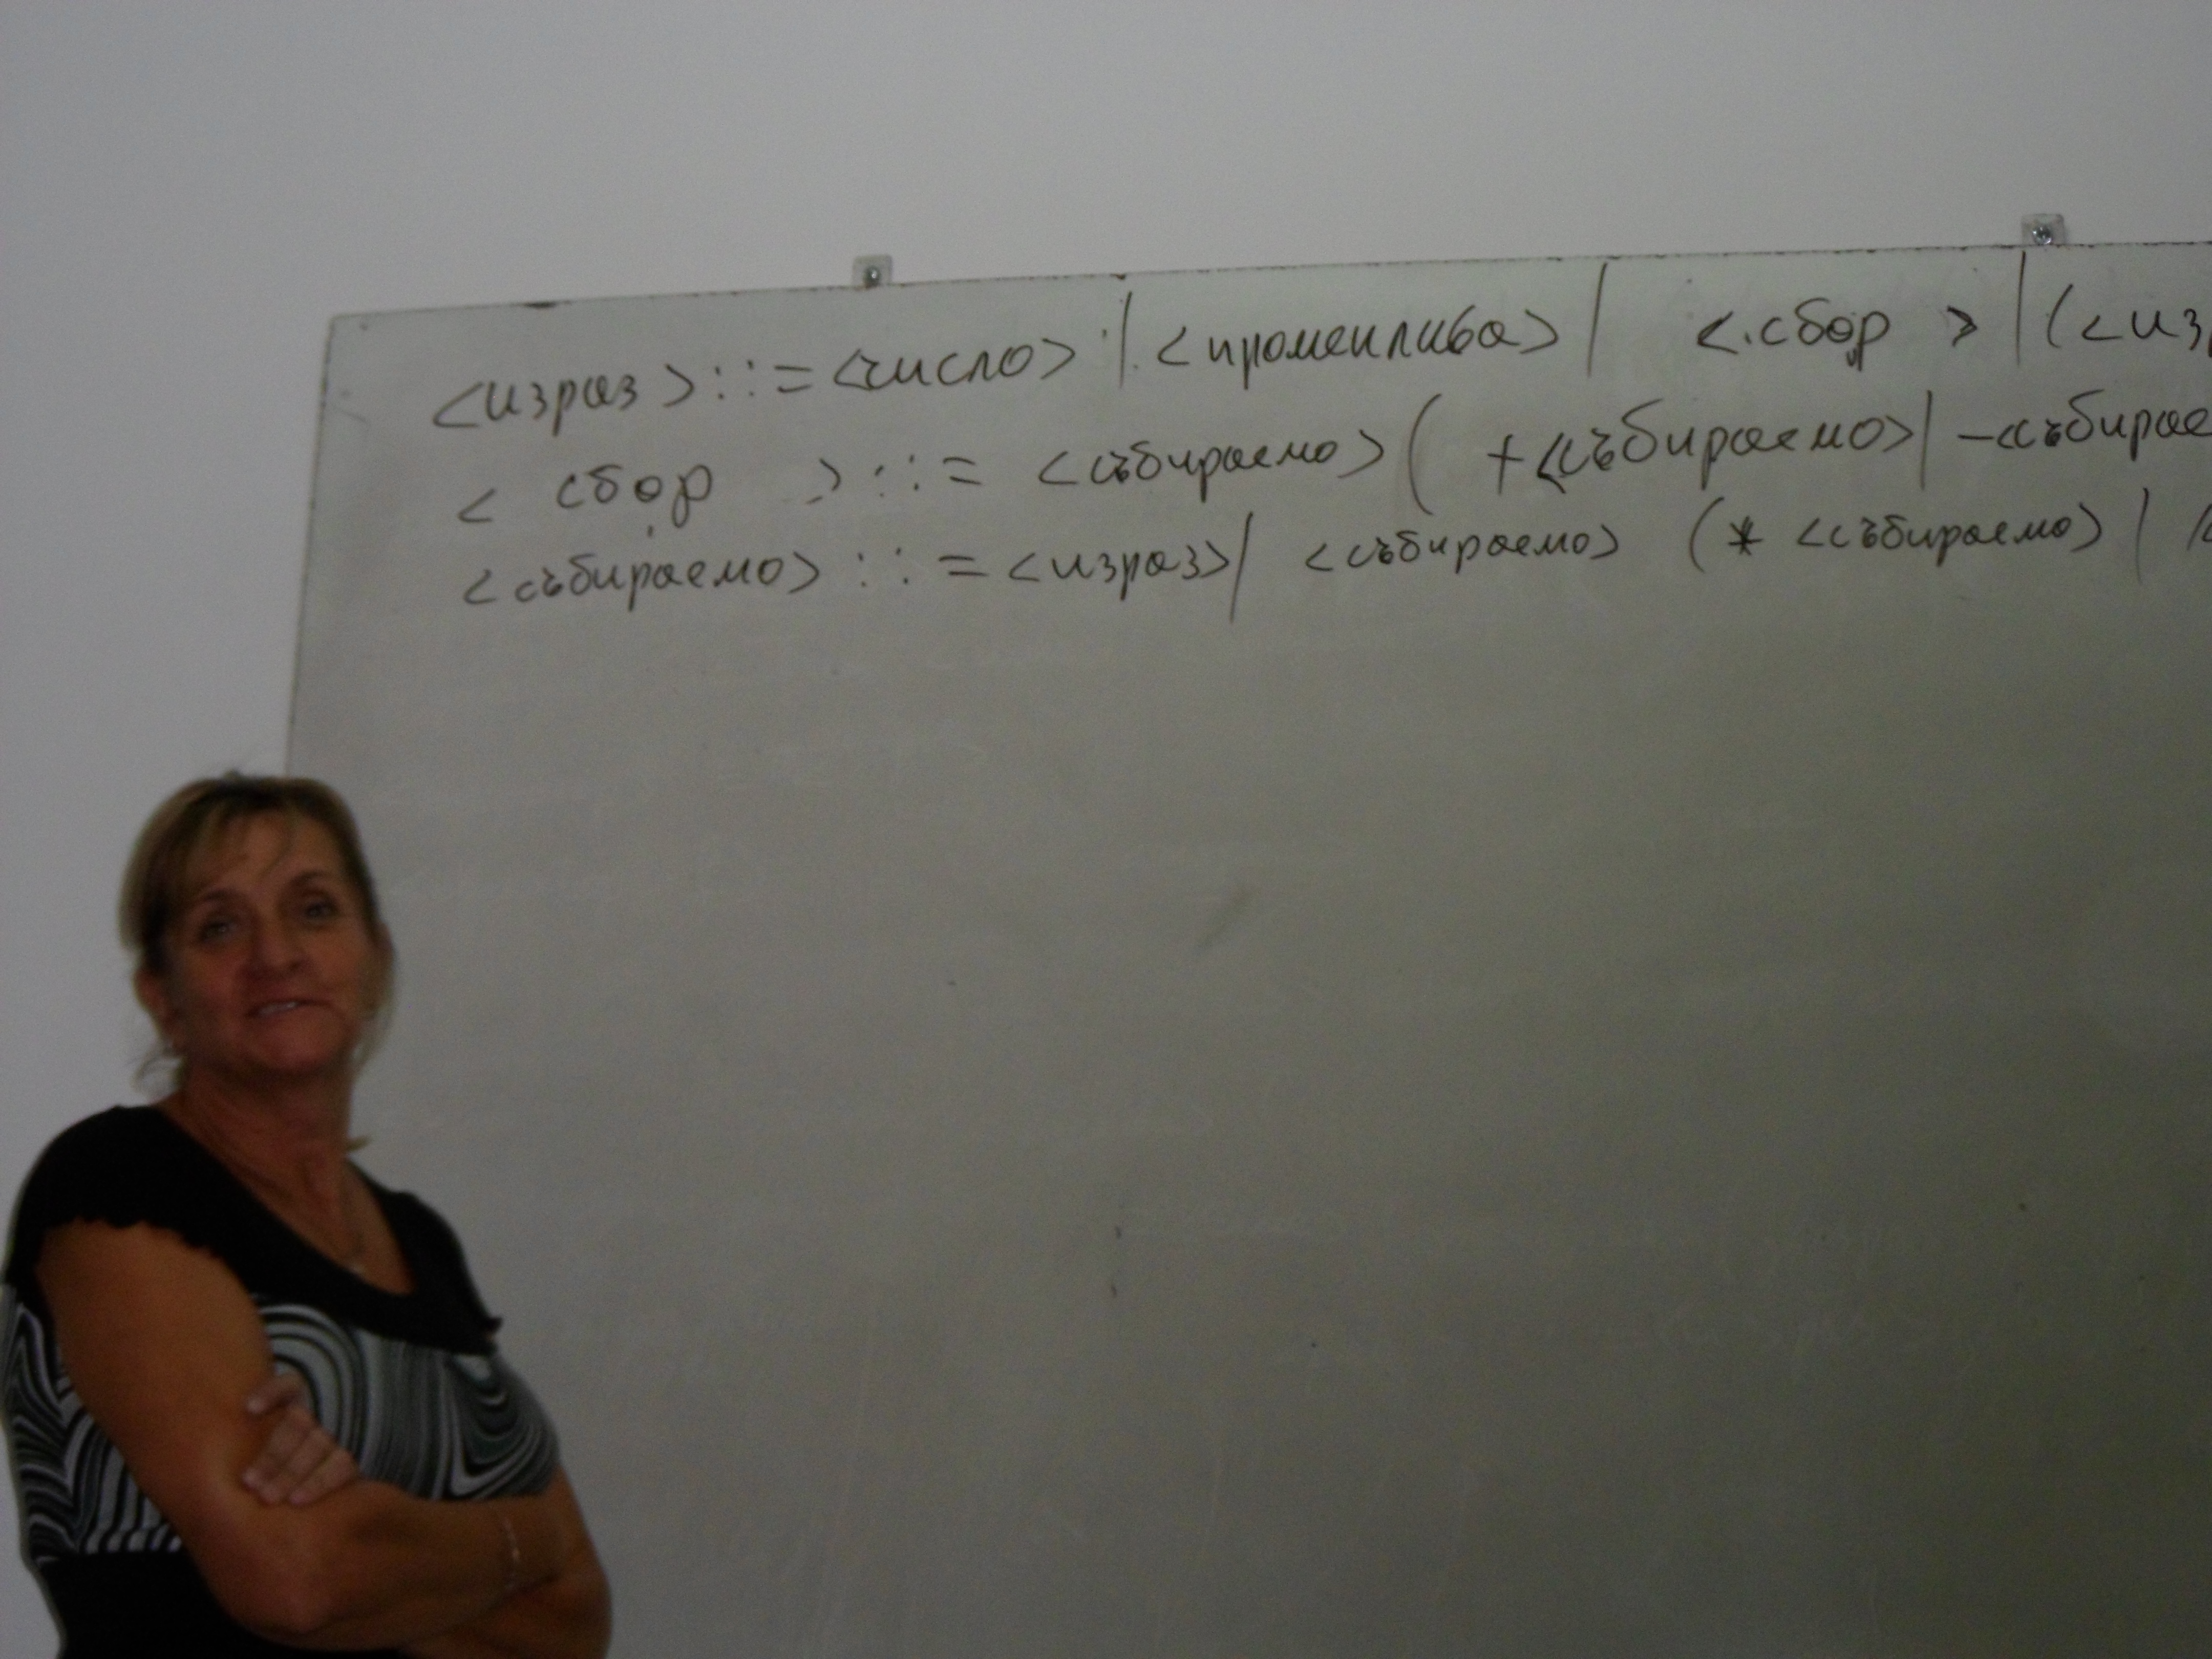 <израз> ::= <число> | <променлива> | <сбор > | (<из
< сбор > ::= <събираемо> ( + <събираемо> | - <събирае
<събираемо> ::= <израз> | <събираемо> ( * <събираемо> | /